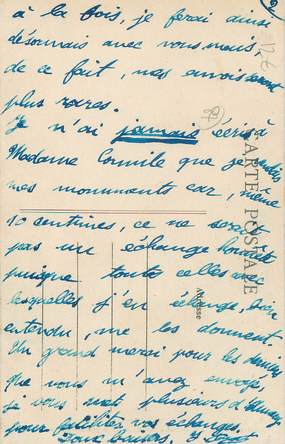 à la fois, je ferai ainsi
désormais avec vous mais,
de ce fait, mes envois seront
plus rares.
Je n'ai jamais écrit à
Madame que je
mes monuments car, même
10 centimes, ce ne serait
pas un échange honnête
puisque toutes celles avec
lesquelles j'en échange, bien
entendu, me les donnent.
Un grand merci pour les dernières
que vous m'avez envoyé,
je vous met plusieurs
pour faciliter vos échanges.
CARTE POSTALE
Adresse